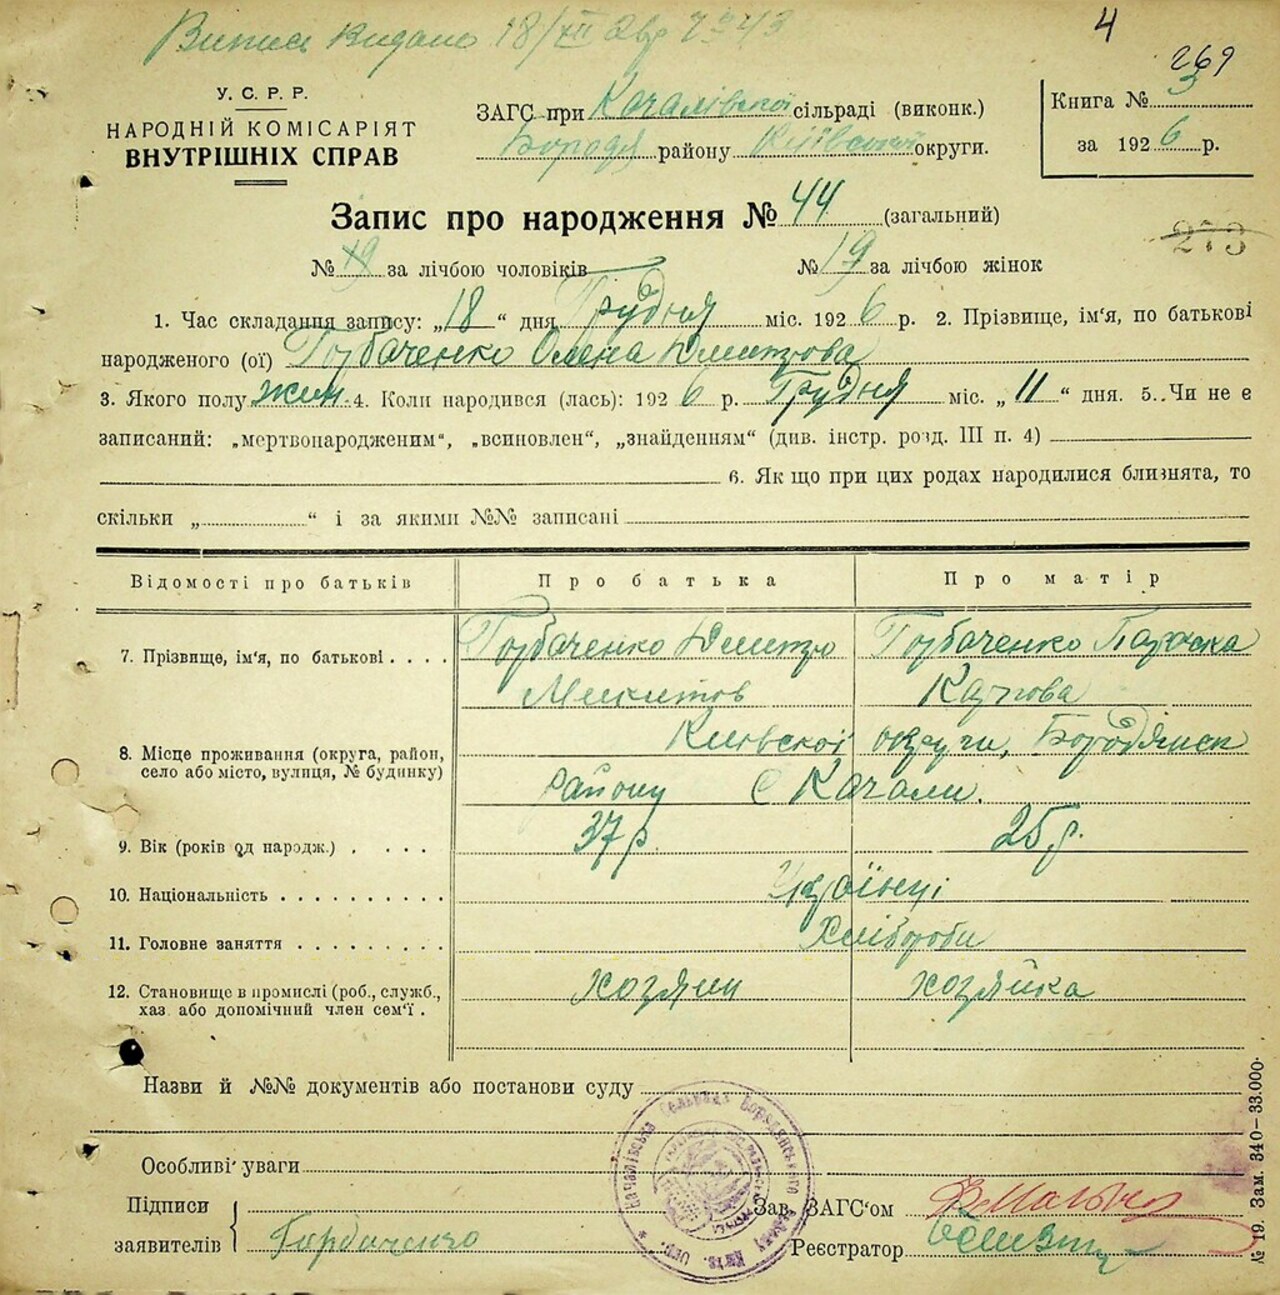 Випись видано 18/XII 43
4
269
У. С. Р. Р.
НАРОДНІЙ КОМІСАРІЯТ
ВНУТРІШНІХ СПРАВ
ЗАГС при Качалівської сільраді (виконк.)
Бородя району Київської округи.
Книга № 3
за 1926 р.
Запис про народження № 44 (загальний)
273
№ 19 за лічбою чоловіків № 19 за лічбою жінок
1. Час складання запису: „18“ дня Грудня міс. 1926 р. 2. Прізвище, ім‘я, по батькові
народженого (ої) Горбаченко Олена Дмитрова
3. Якого полу жин. 4. Коли народився (лась): 1926 р. Грудня міс. „11“ дня. 5. Чи не є
записаний: „мертвонародженим“, „всиновлен“, „знайденням“ (див. інстр. розд. III п. 4)
6. Як що при цих родах народилися близнята, то
скільки „ “ і за якими №№ записані
Відомості про батьків Про батька Про матір
7. Прізвище, ім‘я, по батькові . . . . Горбаченко Дмитро Горбаченко Параска
Микитов Карпова
8. Місце проживання (округа, район, Киівської округи, Бородянск
село або місто, вулиця, № будинку) району С Качали.
9. Вік (років од народж.) . . . . 37 р. 25 р.
10. Національність . . . . . . . . . . Українці
11. Головне заняття . . . . . . . . . Хлібороби
12. Становище в промислі (роб., служб., хозяин хозяйка
хаз. або допомічний член сем‘ї .
Назви й №№ документів або постанови суду
Особливі уваги
Підписи Зав. ЗАГС‘ом
заявителів Горбаченко Реєстратор
Качалівська Сельрада Бородянського району Київ. Окр.
№ 19. Зам. 340–33.000.